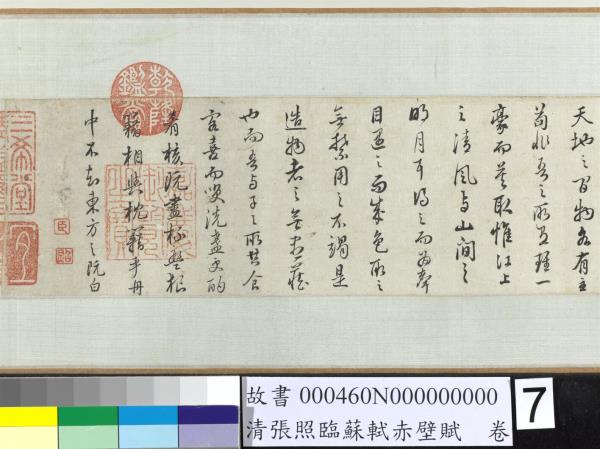 天地之間物各有主
苟非吾之所有雖一
豪而莫取惟江上
之清風與山間之
明月耳得之而為聲
目遇之而成色取之
無禁用之不竭是
造物者之無盡藏
也而吾與子之所共食
客喜而笑洗盞更酌
肴核既盡杯盤狼
籍相與枕藉乎舟
中不知東方之既白
乾隆鑑賞
三希堂
臣照
故書 000460N000000000
清張照臨蘇軾赤壁賦 卷
7